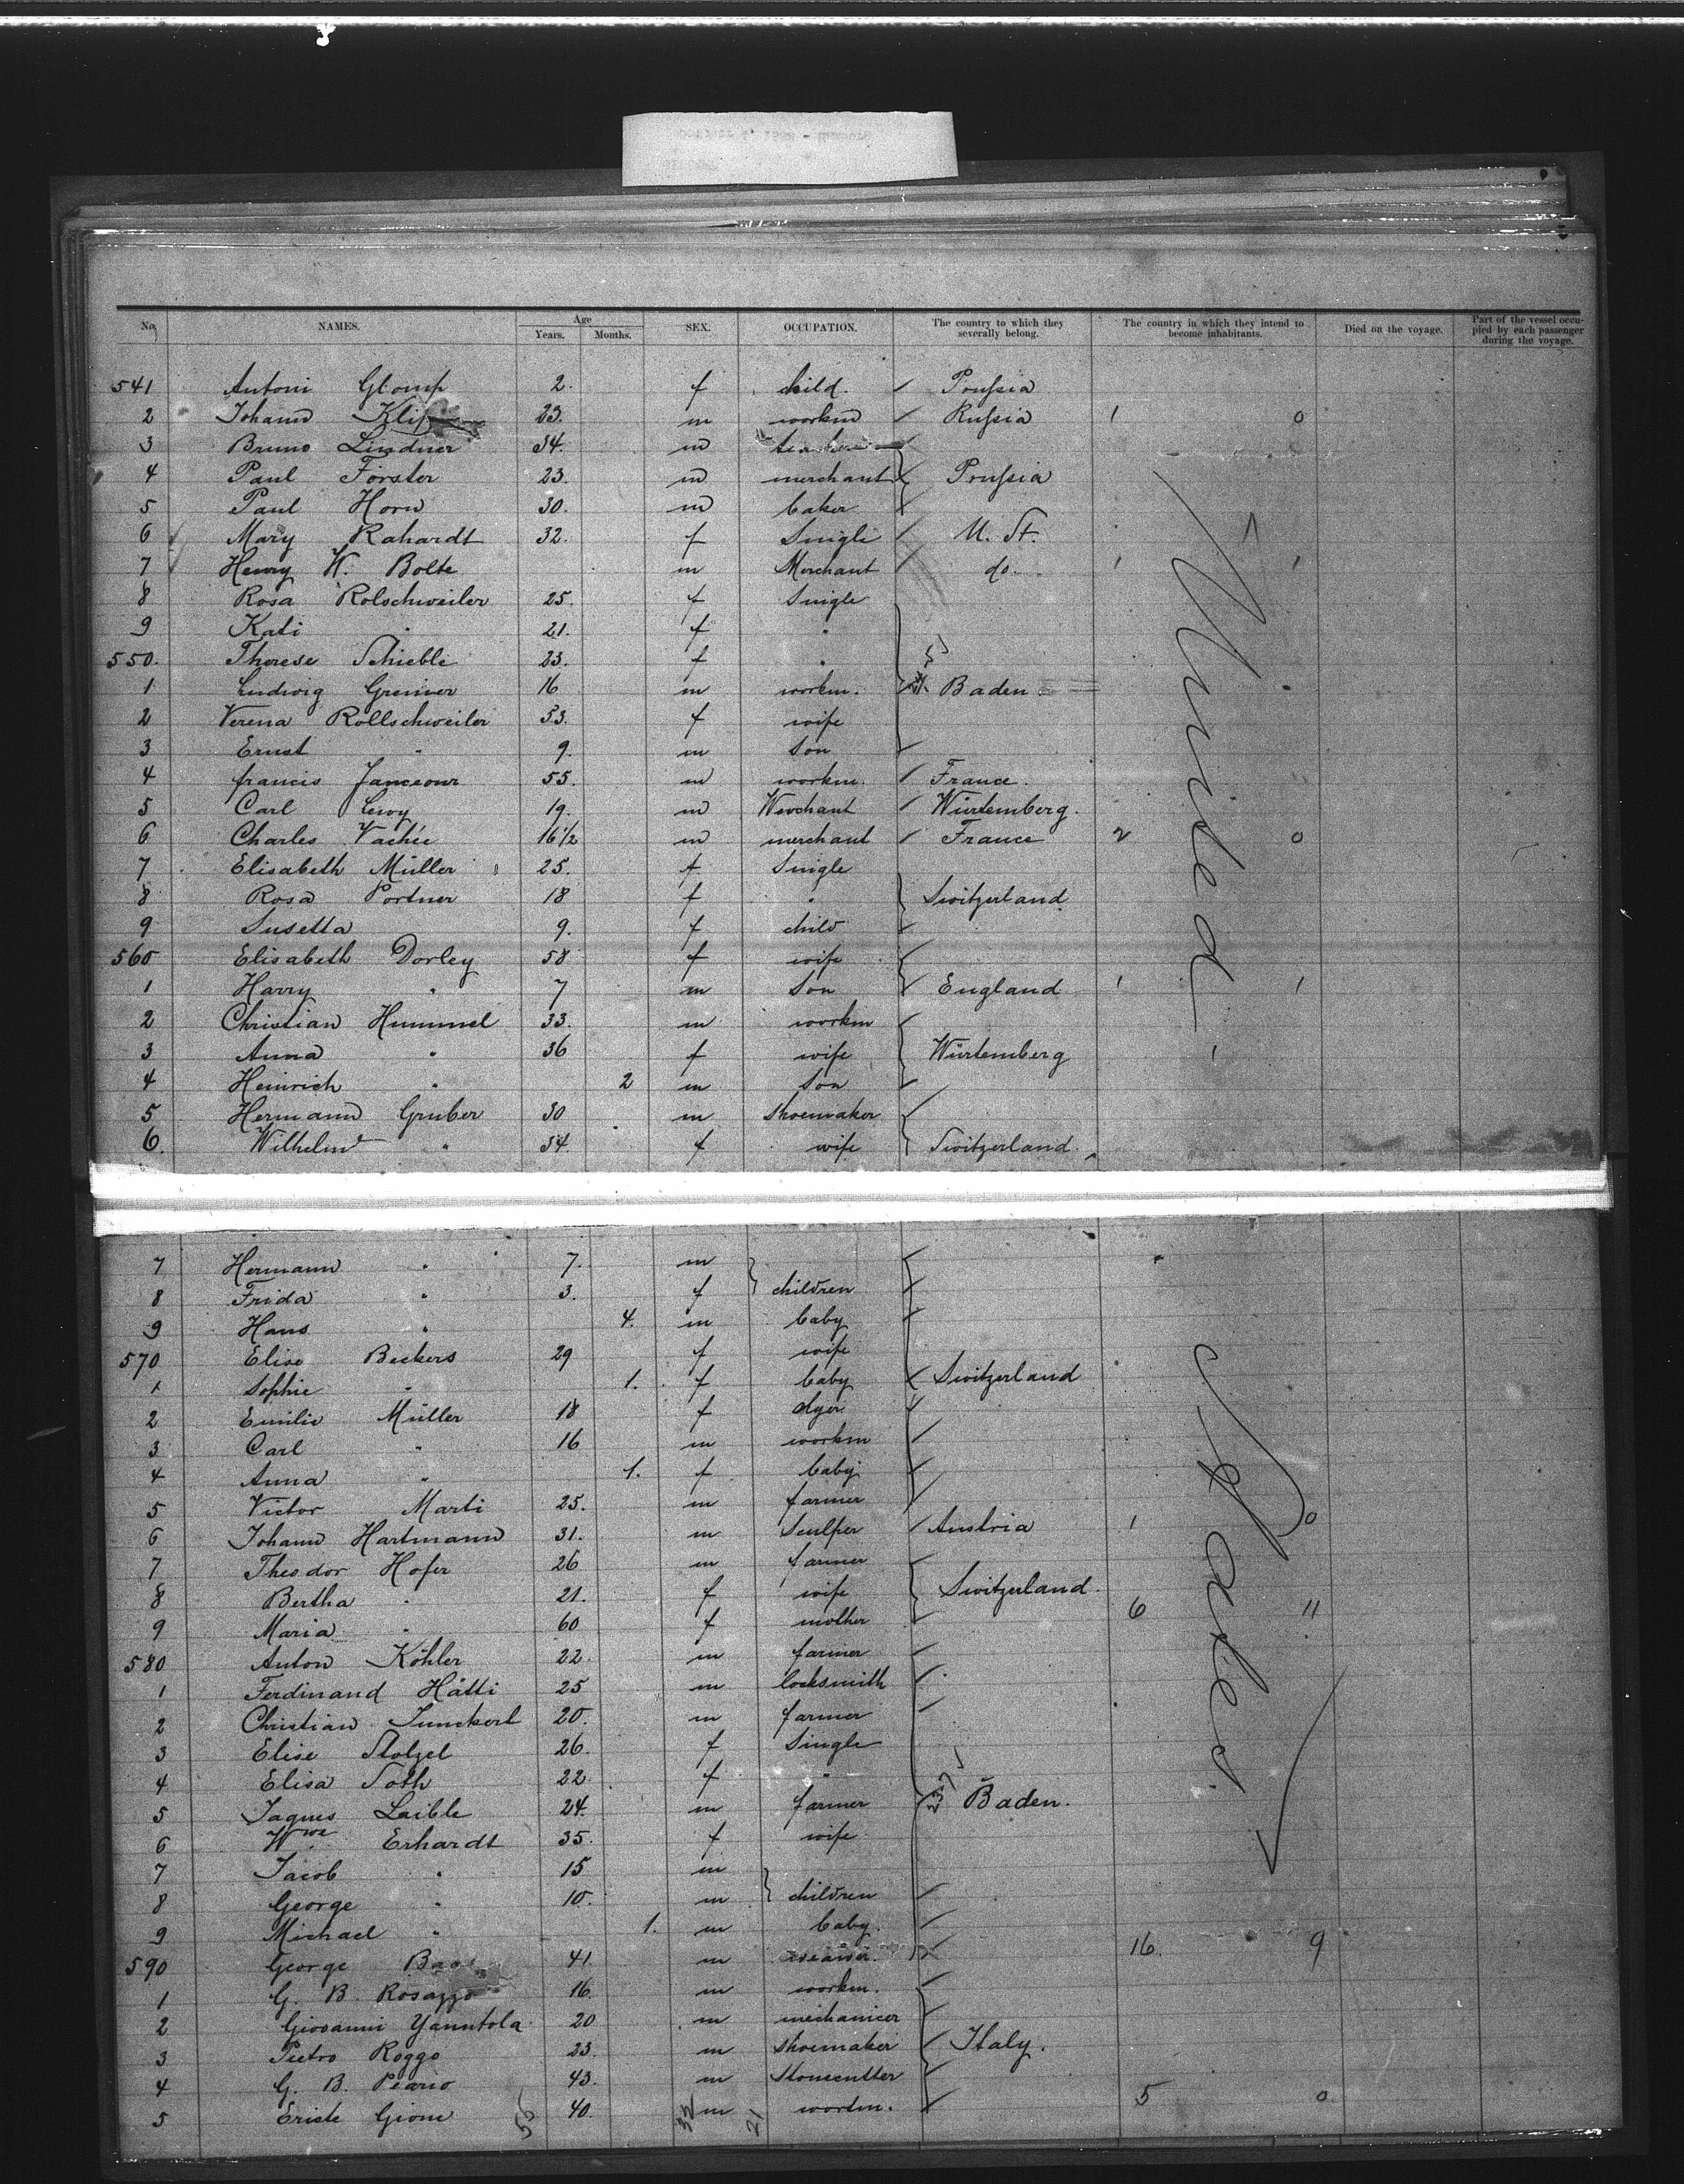 No. NAMES. Age Years. Months. SEX. OCCUPATION. The country to which they severally belong. The country in which they intend to become inhabitants. Died on the voyage. Part of the vessel occupied by each passenger during the voyage.
541 Antoni Glomp 2. f child. Prussia
2 Johann 23. m workm Russia 1 0
3 Bruno Lindner 34. m
4 Paul Förster 23. m merchant Prussia
5 Paul Horn 30. m baker
6 Mary Rahardt 32. f Single U. St.
7 Henry W. Bolte m Merchant do. 1 1
8 Rosa Rolschweiler 25. f Single
9 Kati " 21. f "
550. Therese Schieble 23. f "
1 Ludwig Greiner 16 m workm. Baden
2 Verena Rollschweiler 53. f wife
3 Ernst " 9. m Son
4 francis 55. m workm. France.
5 Carl Levy 19. m Merchant Würtemberg.
6 Charles Vachée 16 1/2 m merchant France 2 0
7 Elisabeth Müller 25. f Single
8 Rosa Portner 18 f " Switzerland
9 Susetta 9. f child
560 Elisabeth Dorley 58 f wife
1 Harry " 7 m Son England 1 1
2 Christian Hummel 33. m workm
3 Anna " 36 f wife Würtemberg
4 Heinrich " 2 m Son
5 Hermann Gruber 30 m Shoemaker
6. Wilhelm " 34. f wife Switzerland.
United
7 Hermann " 7. m
8 Frida " 3. f children
9 Hans " 4. m baby
570 Elise Beckers 29 f wife
1 Sophie " 1. f baby Switzerland
2 Emilie Müller 18 f dyer
3 Carl " 16 m workm
4 Anna " 1. f baby
5 Victor Marti 25. m farmer
6 Johann Hartmann 31. m Sculper Austria 1 0
7 Theodor Hofer 26 m farmer
8 Bertha " 21. f wife Switzerland.
9 Maria " 60 f mother 6 11
580 Anton Köhler 22. m farmer
1 Ferdinand Hätti 25 m locksmith
2 Christian Junckert 20. m farmer
3 Elise Stolzel 26. f Single
4 Elisa Soth 22. f "
5 Jaques Laible 24. m farmer Baden.
6 Wwe Erhardt 35. f wife
7 Jacob " 15 m
8 George " 10. m children
9 Michael " 1. m baby.
590 George 41. m 16. 9
1 G. B. Rosazzo 16. m workm.
2 Giovanni Yanntola 20 m mechanicer
3 Pietro Roggo 23. m Shoemaker Italy.
4 G. B. Peario 43. m Stonecutter
5 Eriste Gione 40. m workm. 5 0
States.
55 32 21